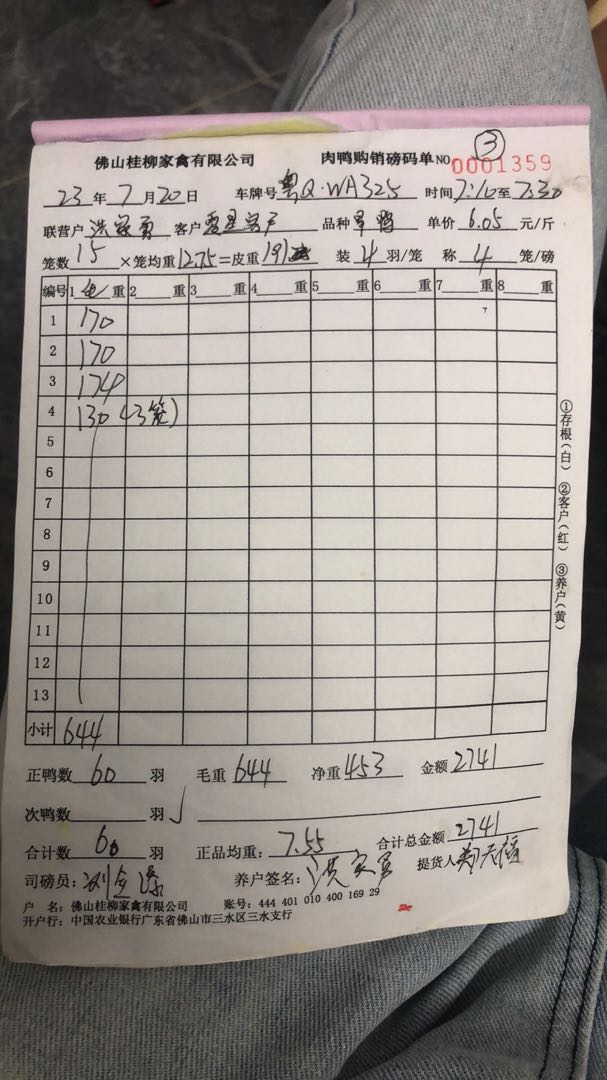 ③
佛山桂柳家禽有限公司 肉鸭购销磅码单 NO 0001359
23年7月20日 车牌号 粤Q·WA325 时间7:10至7:30
联营户 洪家勇 客户 品种 旱鸭 单价 6.05 元/斤
笼数 15 ×笼均重12.75=皮重191 装 4 羽/笼 称 4 笼/磅
编号 1 毛 重 2 重 3 重 4 重 5 重 6 重 7 重 8 重
1 170
2 170
3 174
4 130 (3笼)
5
6
7
8
9
10
11
12
13
小计 644
①存根(白) ②客户(红) ③养户(黄)
正鸭数 60 羽 毛重 644 净重 453 金额 2741
次鸭数 羽
合计数 60 羽 正品均重: 7.55 合计总金额 2741
司磅员: 养户签名: 提货人
户 名: 佛山桂柳家禽有限公司 账号: 444 401 010 400 169 29
开户行: 中国农业银行广东省佛山市三水区三水支行